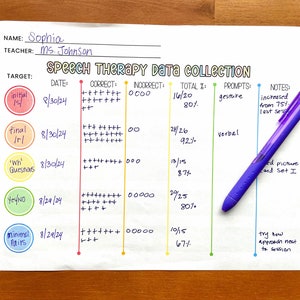 NAME: Sophia
TEACHER: Ms. Johnson
SPEECH THERAPY DATA COLLECTION
TARGET: DATE: CORRECT: INCORRECT: TOTAL %: PROMPTS: NOTES:
initial /s/ 8/30/24 16/20 80% gesture increased from 75% last
final /r/ 8/30/24 92% verbal
"Wh" Questions 8/30/24 13/15 87% picture and set 1
Yes/No 8/29/24 /25 80%
minimal pairs 8/29/24 10/15 67% try new approach next session